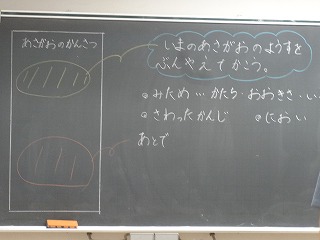 あさがおのかんさつ
いまのあさがおのようすを
ぶんやえでかこう。
みため…かたち・おおきさ・い
さわったかんじ
におい
あとで